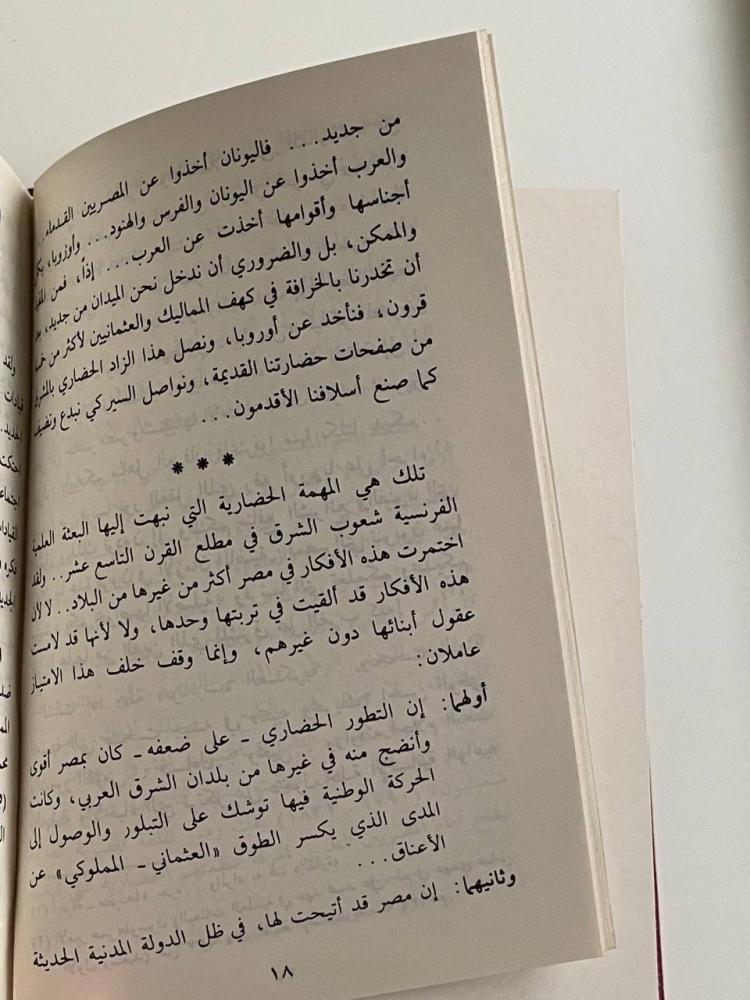 من جديد... فاليونان أخذوا عن المصريين القدماء..
والعرب أخذوا عن اليونان والفرس والهنود... وأوروبا، بكل
أجناسها وأقوامها أخذت عن العرب... إذاً، فمن
والممكن، بل والضروري أن ندخل نحن الميدان من جديد، بعد
أن تخدرنا بالخرافة في كهف المماليك والعثمانيين لأكثر من خمسة
قرون، فنأخد عن أوروبا، ونصل هذا الزاد الحضاري بالمشرق
من صفحات حضارتنا القديمة، ونواصل السير كي نبدع ونضيف
كما صنع أسلافنا الأقدمون...
* * *
تلك هي المهمة الحضارية التي نبهت إليها البعثة العلمية
الفرنسية شعوب الشرق في مطلع القرن التاسع عشر.. ولقد
اختمرت هذه الأفكار في مصر أكثر من غيرها من البلاد.. لا لأن
هذه الأفكار قد ألقيت في تربتها وحدها، ولا لأنها قد لامست
عقول أبنائها دون غيرهم، وإنما وقف خلف هذا الامتياز
عاملان:
أولهما: إن التطور الحضاري - على ضعفه - كان بمصر أقوى
وأنضج منه في غيرها من بلدان الشرق العربي، وكانت
الحركة الوطنية فيها توشك على التبلور والوصول إلى
المدى الذي يكسر الطوق «العثماني - المملوكي» عن
الأعناق...
وثانيهما: إن مصر قد أتيحت لها، في ظل الدولة المدنية الحديثة
١٨